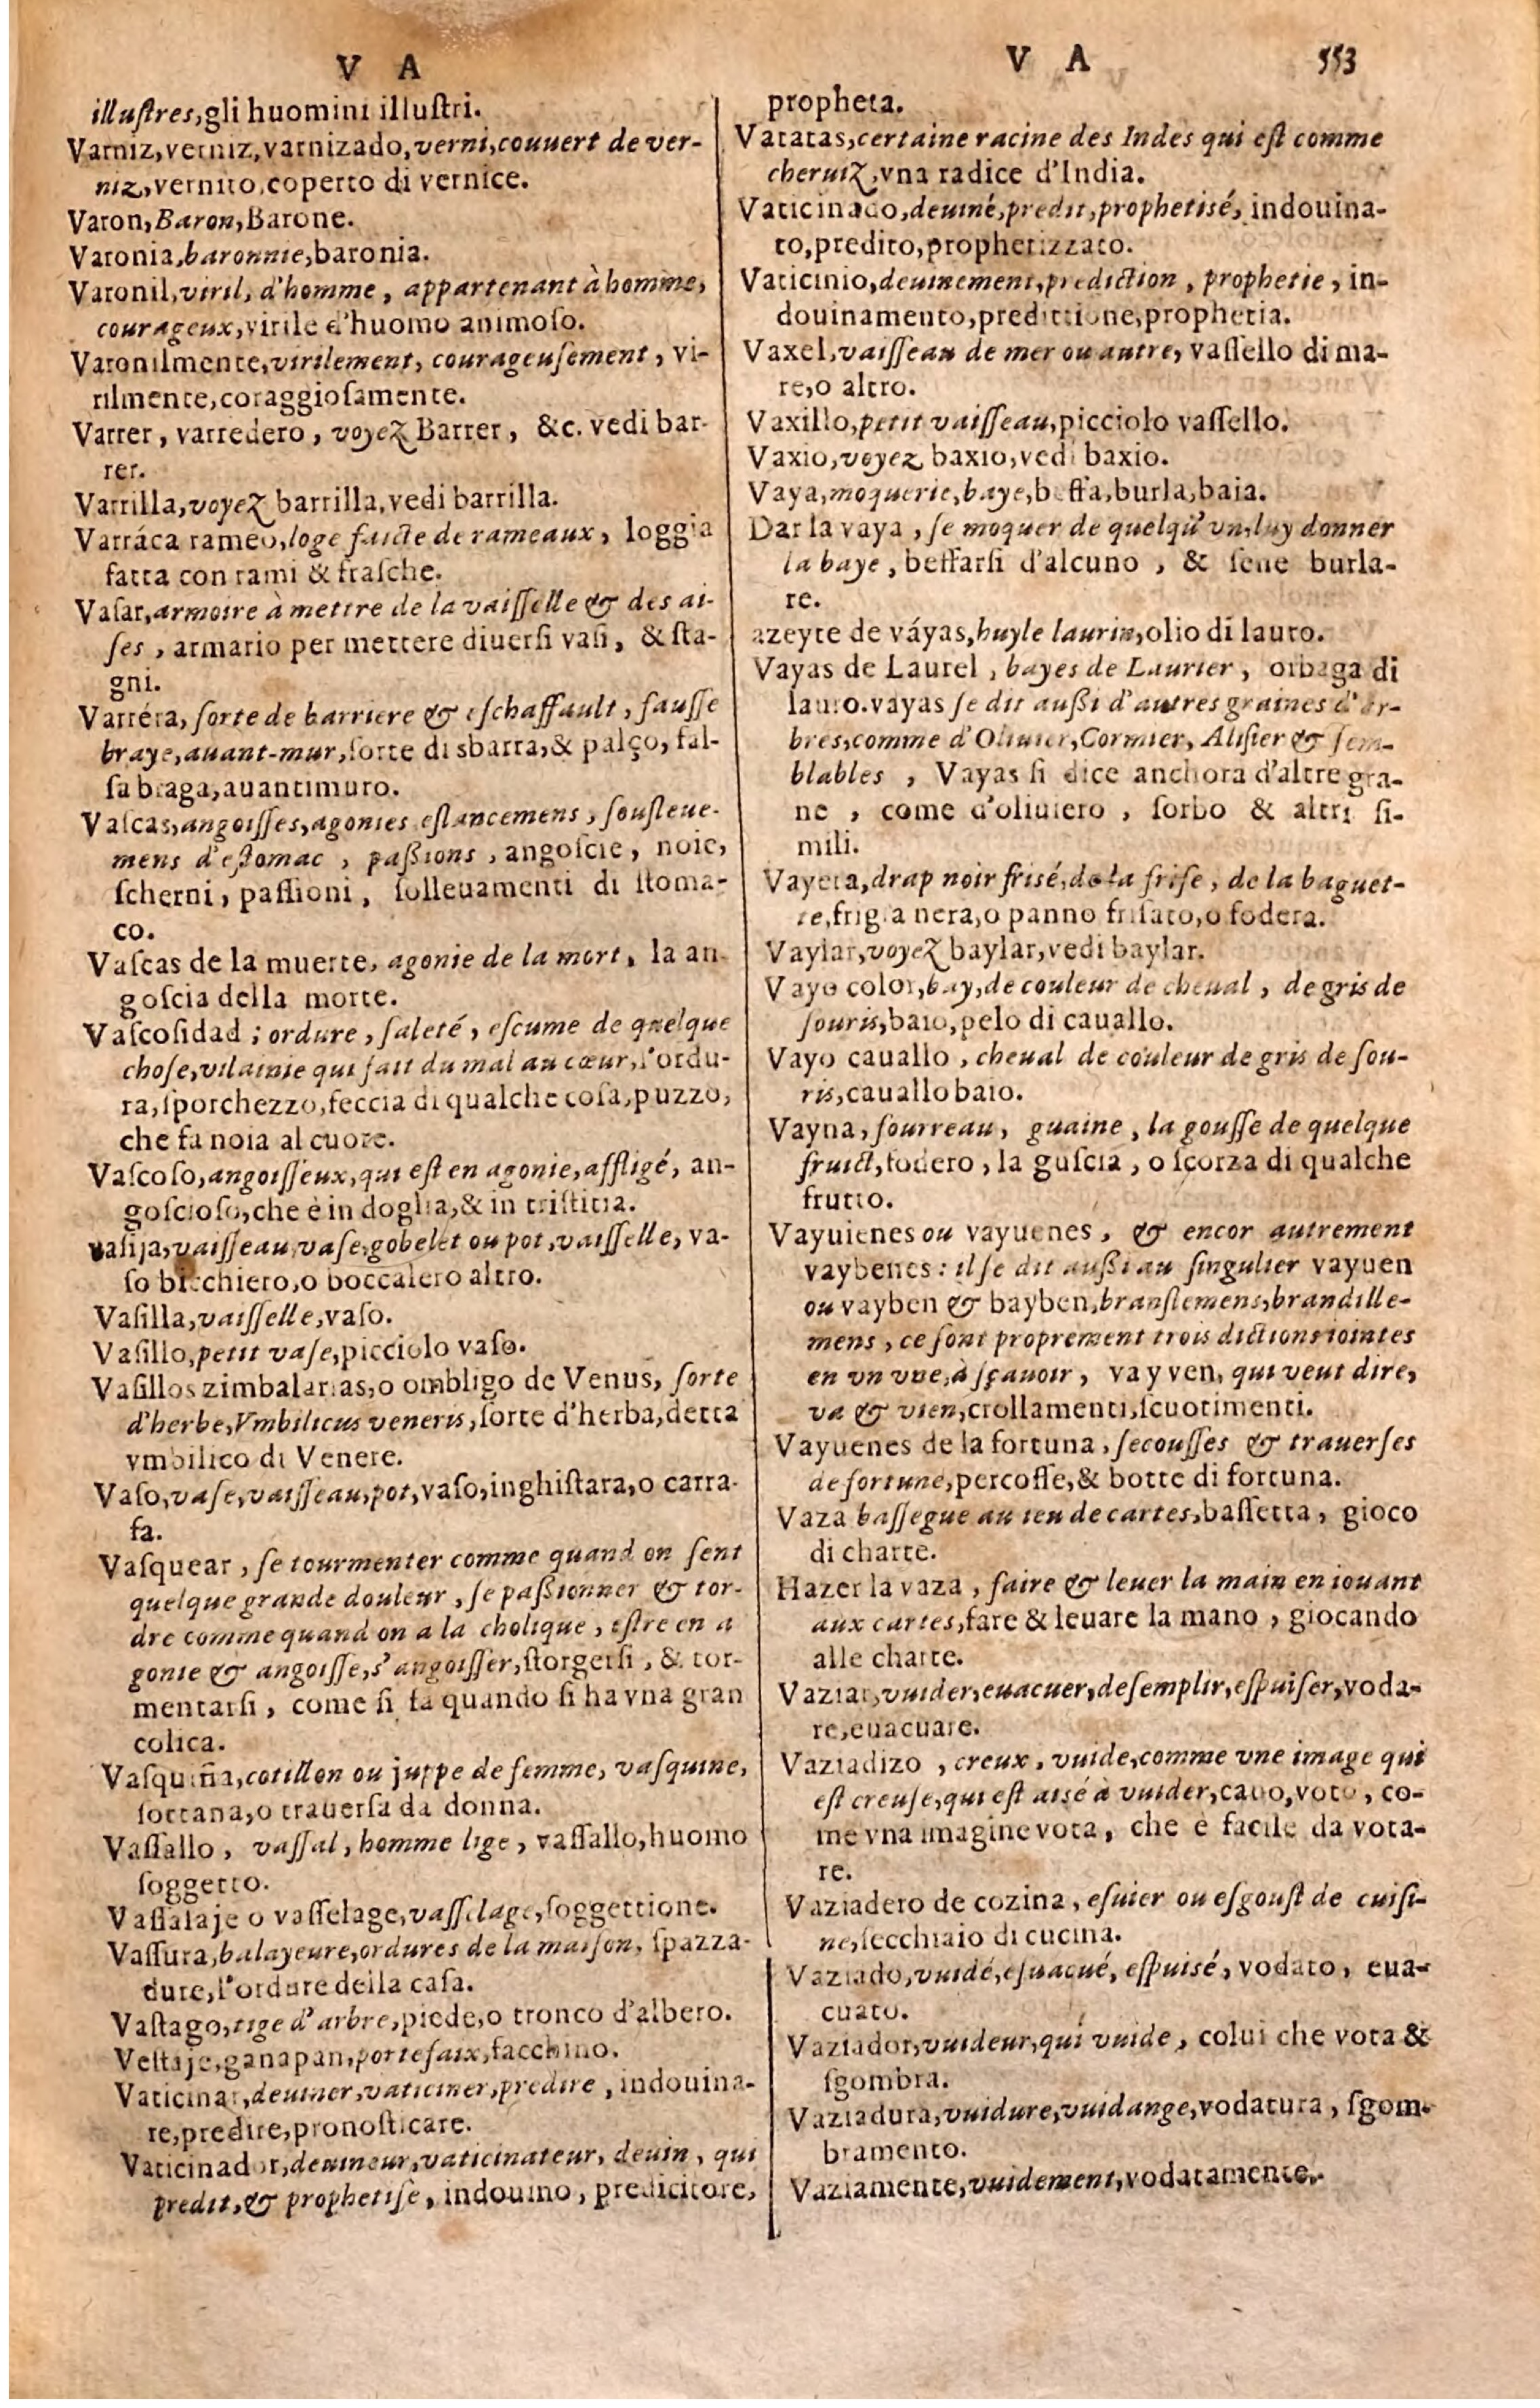 V A
illuſtres, gli huomini illuſtri.
Varniz, verniz, varnizado, verni, couuert de ver-
niz, vernito, coperto di vernice.
Varon, Baron, Barone.
Varonia, baronnie, baronia.
Varonil, viril, d'homme, appartenant à homme,
courageux, virile d'huomo animoſo.
Varonilmente, virilement, courageuſement, vi-
rilmente, coraggioſamente.
Varrer, varredero, voyez Barrer, &c. vedi bar-
rer.
Varrilla, voyez barrilla, vedi barrilla.
Varráca rameo, loge faicte de rameaux, loggia
fatta con rami & fraſche.
Vaſar, armoire à mettre de la vaiſſelle & des ai-
ſes, armario per mettere diuerſi vaſi, & ſta-
gni.
Varréra, ſorte de barriere & eſchaffault, fauſſe
braye, auant-mur, ſorte di sbarra, & palço, fal-
ſa braga, auantimuro.
Vaſcas, angoiſſes, agonies eſlancemens, ſouſleue-
mens d'eſtomac, paßions, angoſcie, noie,
ſcherni, paſſioni, ſolleuamenti di ſtoma-
co.
Vaſcas de la muerte, agonie de la mort, la an-
goſcia della morte.
Vaſcoſidad; ordure, ſaleté, eſcume de quelque
choſe, vilainie qui fait du mal au cœur, l'ordu-
ra, ſporchezzo, feccia di qualche coſa, puzzo,
che fa noia al cuore.
Vaſcoſo, angoiſſeux, qui eſt en agonie, affligé, an-
goſcioſo, che è in doglia, & in triſtitia.
vaſija, vaiſſeau, vaſe, gobelet ou pot, vaiſſelle, va-
ſo bicchiero, o boccalero altro.
Vaſilla, vaiſſelle, vaſo.
Vaſillo, petit vaſe, picciolo vaſo.
Vaſillos zimbalarias, o ombligo de Venus, ſorte
d'herbe, Vmbilicus veneris, ſorte d'herba, detta
vmbilico di Venere.
Vaſo, vaſe, vaiſſeau, pot, vaſo, inghiſtara, o carra-
fa.
Vaſquear, ſe tourmenter comme quand on ſent
quelque grande douleur, ſe paßionner & tor-
dre comme quand on a la cholique, eſtre en a
gonie & angoiſſe, s'angoiſſer, ſtorgerſi, & tor-
mentarſi, come ſi fa quando ſi ha vna gran
colica.
Vaſquiña, cotillon ou juppe de femme, vaſquine,
ſottana, o trauerſa da donna.
Vaſſallo, vaſſal, homme lige, vaſſallo, huomo
ſoggetto.
Vaſſalaje o vaſſelage, vaſſelage, ſoggettione.
Vaſſura, balayeure, ordures de la maiſon, ſpazza-
dure, l'ordure della caſa.
Vaſtago, tige d'arbre, piede, o tronco d'albero.
Veſtaje, ganapan, portefaix, facchino.
Vaticinar, deuiner, vaticiner, predire, indouina-
re, predire, pronoſticare.
Vaticinador, deuineur, vaticinateur, deuin, qui
predit, & prophetiſe, indouino, predicitore,
V A 553
propheta.
Vatatas, certaine racine des Indes qui eſt comme
cheruiz, vna radice d'India.
Vaticinado, deuiné, predit, prophetisé, indouina-
to, predito, prophetizzato.
Vaticinio, deuinement, prediction, prophetie, in-
douinamento, predittione, prophetia.
Vaxel, vaiſſeau de mer ou autre, vaſſello di ma-
re, o altro.
Vaxillo, petit vaiſſeau, picciolo vaſſello.
Vaxio, voyez baxio, vedi baxio.
Vaya, moquerie, baye, beffa, burla, baia.
Dar la vaya, ſe moquer de quelqu'vn, luy donner
la baye, beffarſi d'alcuno, & ſene burla-
re.
azeyte de váyas, huyle laurin, olio di lauro.
Vayas de Laurel, bayes de Laurier, orbaga di
lauro. vayas ſe dit außi d'autres graines d'ar-
bres, comme d'Oliuier, Cormier, Aliſier & ſem-
blables, Vayas ſi dice anchora d'altre gra-
ne, come d'oliuiero, ſorbo & altri ſi-
mili.
Vayeta, drap noir friſé, de la friſe, de la baguet-
te, frigia nera, o panno friſato, o fodera.
Vaylar, voyez baylar, vedi baylar.
Vayo color, bay, de couleur de cheual, de gris de
ſouris, baio, pelo di cauallo.
Vayo cauallo, cheual de couleur de gris de ſou-
ris, cauallo baio.
Vayna, fourreau, guaine, la gouſſe de quelque
fruict, fodero, la guſcia, o ſçorza di qualche
frutto.
Vayuienes ou vayuenes, & encor autrement
vaybenes: il ſe dit außi au ſingulier vayuen
ou vayben & bayben, branſlemens, brandille-
mens, ce ſont proprement trois dictions iointes
en vn vne, à ſçauoir, va y ven, qui veut dire,
va & vien, crollamenti, ſcuotimenti.
Vayuenes de la fortuna, ſecouſſes & trauerſes
de fortune, percoſſe, & botte di fortuna.
Vaza baſſegue au ieu de cartes, baſſetta, gioco
di charte.
Hazer la vaza, faire & leuer la main en iouant
aux cartes, fare & leuare la mano, giocando
alle charte.
Vaziar, vuider, euacuer, deſemplir, eſpuiſer, voda-
re, euacuare.
Vaziadizo, creux, vuide, comme vne image qui
eſt creuſe, qui eſt aisé à vuider, cauo, voto, co-
me vna imagine vota, che è facile da vota-
re.
Vaziadero de cozina, eſuier ou eſgouſt de cuiſi-
ne, ſecchiaio di cucina.
Vaziado, vuidé, eſuacué, eſpuisé, vodato, eua-
cuato.
Vaziador, vuideur, qui vuide, colui che vota &
ſgombra.
Vaziadura, vuidure, vuidange, vodatura, ſgom-
bramento.
Vaziamente, vuidement, vodatamente.